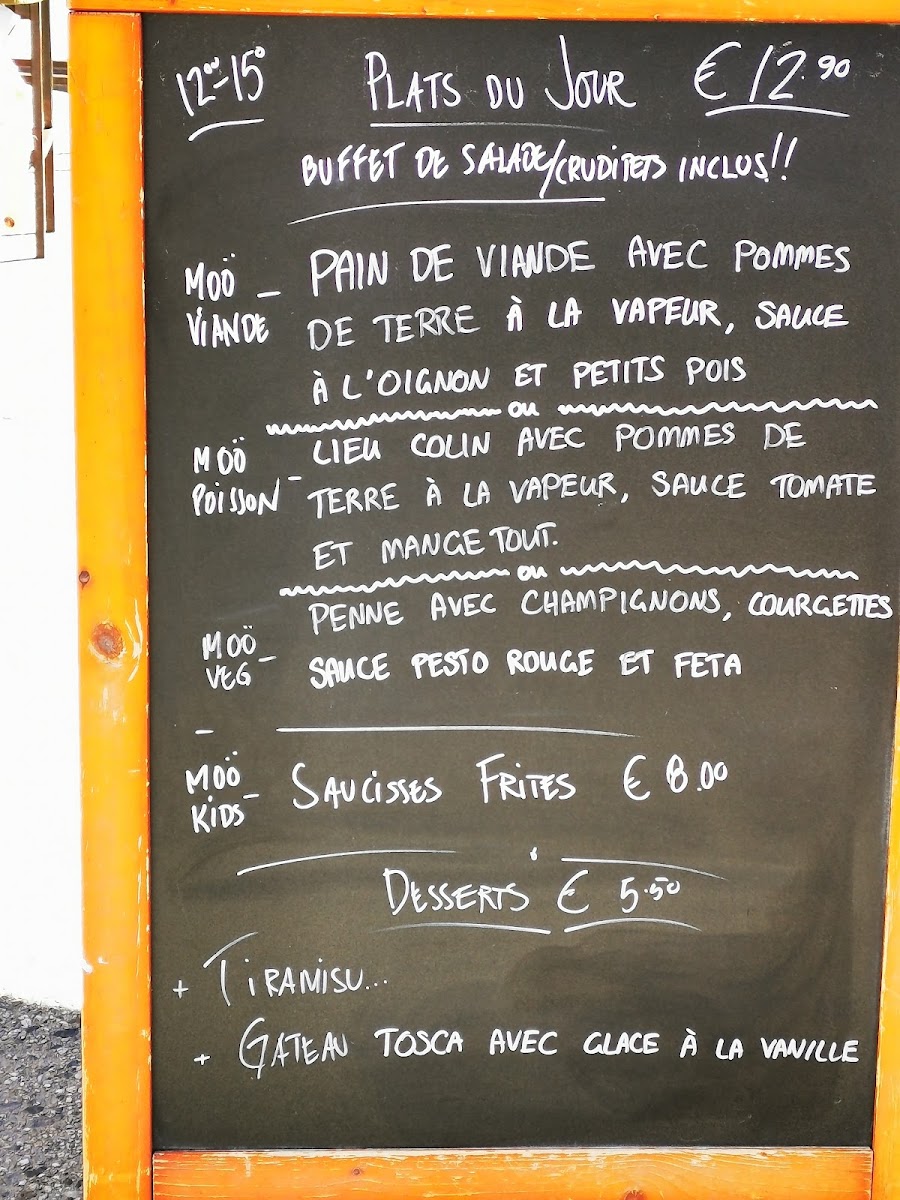 12⁰⁰-15⁰ PLATS DU JOUR € 12.90
BUFFET DE SALADE/CRUDITETS INCLUS!!
MOÖ VIANDE - PAIN DE VIANDE AVEC POMMES
DE TERRE À LA VAPEUR, SAUCE
À L'OIGNON ET PETITS POIS
ou
MOÖ POISSON - LIEU COLIN AVEC POMMES DE
TERRE À LA VAPEUR, SAUCE TOMATE
ET MANGE TOUT.
ou
MOÖ VEG - PENNE AVEC CHAMPIGNONS, COURGETTES
SAUCE PESTO ROUGE ET FETA
MOÖ KIDS - SAUCISSES FRITES € 8.00
DESSERTS € 5.50
+ TIRAMISU...
+ GATEAU TOSCA AVEC GLACE À LA VANILLE